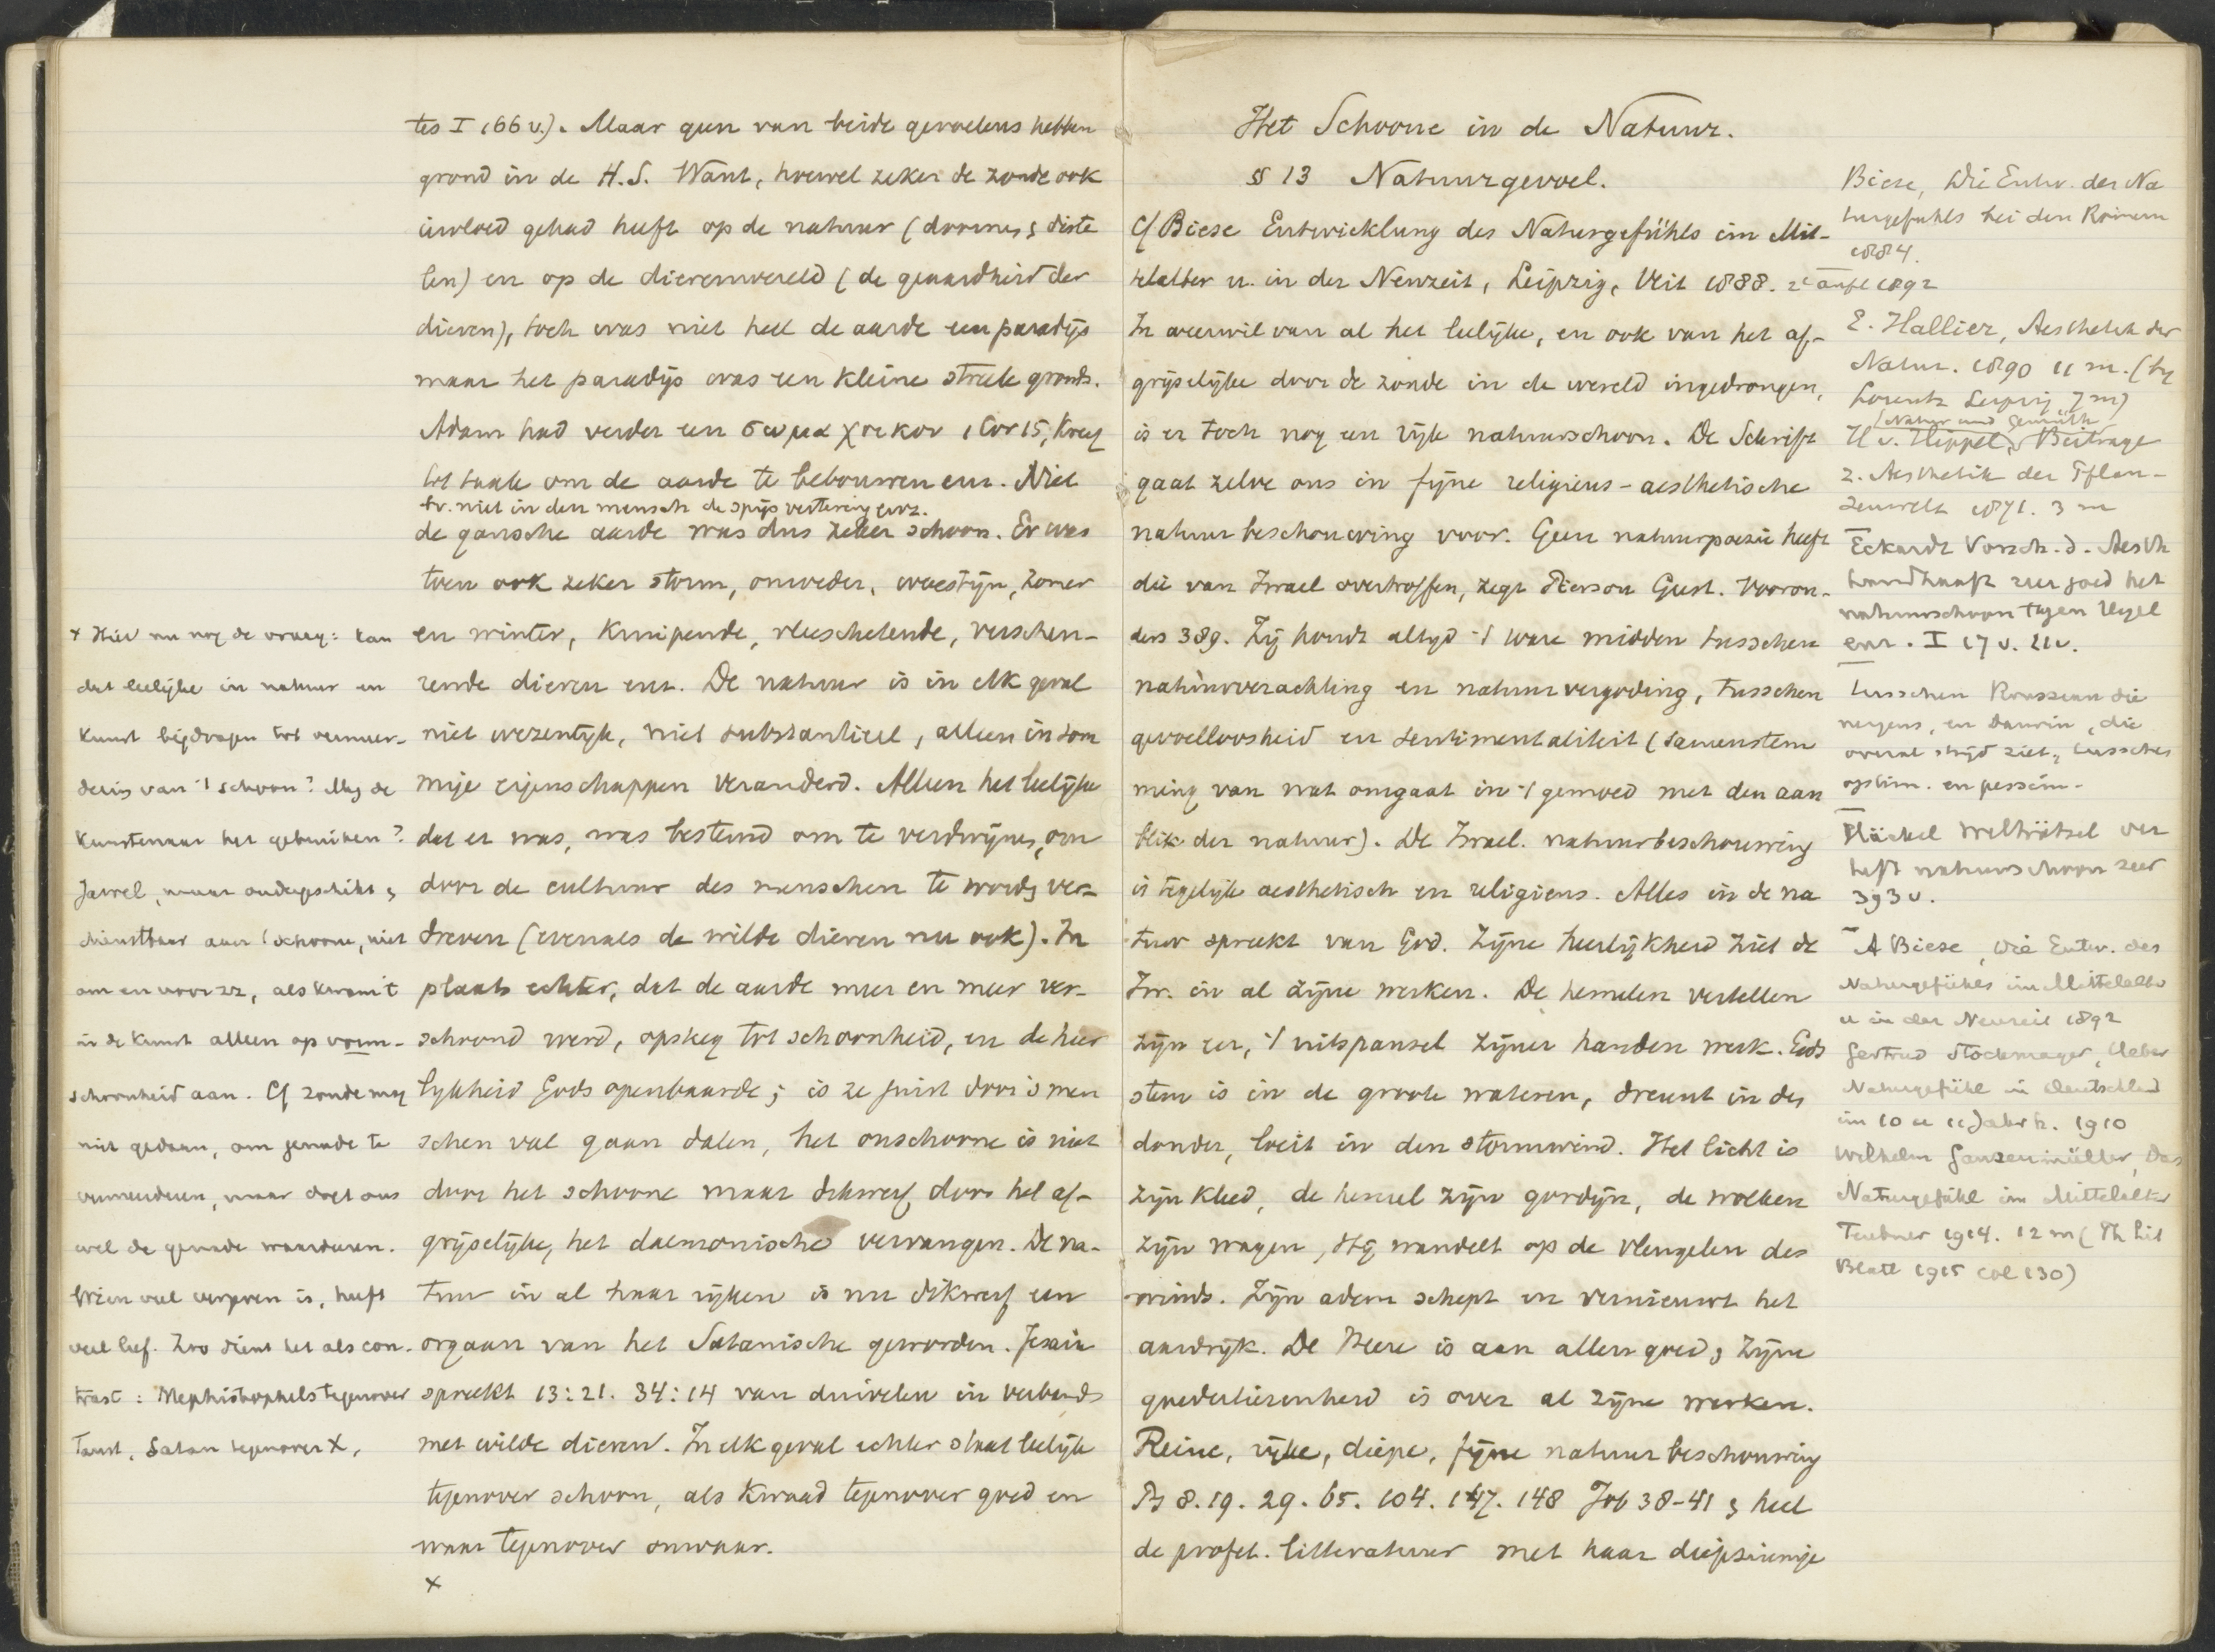 tes I 166 v.). Maar geen van beide gevoelens hebben
grond in de H.S. Want, hoewel zeker de zonde ook
invloed gehad heeft op de natuur (doornen & diste
len) en op de dierenwereld (de geaardheid der
dieren), toch was niet heel de aarde een paradijs
maar het paradijs was een kleine streek gronds.
Adam had verder een σωμα χοικον 1 Cor 15, kreeg
tot taak om de aarde te bebouwen enz. Niet
tv. niet in den mensch de spijsvertering enz.
de gansche aarde was dus zeker schoon. Er was
toen ook zeker storm, onweder, woestijn, zomer
en winter, kruipende, vleeschetende, verscheu-
rende dieren enz. De natuur is in elk geval
niet wezenlijk, niet substantieel, alleen in som
mige eigenschappen veranderd. Alleen het leelijke
dat er was, was bestemd om te verdwijnen, om
door de cultuur des menschen te words ver-
dreven (evenals de wilde dieren nu ook). In
plaats echter, dat de aarde meer en meer ver-
schoond werd, opsteeg tot schoonheid, en de heer
lykheid Gods openbaarde; is ze juist door 's men
schen val gaan dalen, het onschoone is niet
door het schoone maar dikwerf door het af-
grijselijke, het daemonische vervangen. De na-
tuur in al haar rijken is nu dikwerf een
orgaan van het Satanische geworden. Jesaia
spreekt 13:21. 34:14 van duivelen in verband
met wilde dieren. In elk geval echter staat leelijk
tegenover schoon, als kwaad tegenover goed en
waar tegenover onwaar.
x
x Hier nu nog de vraag: kan
dat leelijke in natuur en
kunst bijdragen tot vermeer-
dering van 't schoon? Mag de
kunstenaar het gebruiken?
Jawel, maar ondergeschikt &
dienstbaar aan 't schoone, niet
om en voor zz, als kwam 't
in de kunst alleen op vorm-
schoonheid aan. Cf zonde mag
niet gedaan, om genade te
vermeerderen, maar doet ons
wel de genade waarderen.
Wien veel vergeven is, heeft
veel lief. Zoo dient het als con-
trast: Mephistophels tegenover
Faust, Satan tegenover X,
Het Schoone in de Natuur.
§ 13 Natuurgevoel.
Cf Biese Entwicklung des Naturgefühls im Mit-
telalter u. in der Neuzeit, Leipzig, Veit 1888. 2e aufl 1892
In weerwil van al het leelijke, en ook van het af-
grijselijke door de zonde in de wereld ingedrongen,
is er toch nog een rijk natuurschoon. De Schrift
gaat zelve ons in fijne religieus-aesthetische
natuurbeschouwing voor. Geen natuurpoezie heeft
die van Israel overtroffen, zegt Pierson Gesch. Vooron-
ders 389. Zij houdt altijd 't ware midden tusschen
natuurverachting en natuurvergoding, tusschen
gevoelloosheid en sentimentaliteit (samenstem
ming van wat omgaat in 't gemoed met den aan
blik der natuur). De Israel. natuurbeschouwing
is tegelijk aesthetisch en religieus. Alles in de na
tuur spreekt van God. Zijne heerlijkheid ziet de
Isr. in al zijne werken. De hemelen vertellen
zijn eer, 't uitspansel zijner handen werk. Gods
stem is in de groote wateren, dreunt in den
donder, loeit in den stormwind. Het licht is
zijn kleed, de hemel zijn gordijn, de wolken
zijn wagen, Hij wandelt op de vleugelen des
winds. Zijn adem schept en vernieuwt het
aardrijk. De Heere is aan allen goed, & zijne
goedertierenheid is over al zijne werken.
Reine, rijke, diepe, fijne natuurbeschouwing
Ps 8. 19. 29. 65. 104. 147. 148 Job 38-41 & heel
de profet. litteratuur met haar diepzinnige
Biese, Die Entw. des Na
turgefuhls bei den Römern
1884.
E. Hallier, Aesthetik der
Natur. 1890 11 m. (by
Lorentz Leipzig 7 m)
(Natur und Gemüth
H v. Hippel, Beitrage
z. Aesthetik der Pflan-
zenwelt 1871. 3 m
Eckardt Vorsch. d. Aesth
handhaaft zeer goed het
natuurschoon tegen Hegel
enz. I 17 v. 21 v.
tusschen Rousseau die
nergens, en Darwin, die
overal strijd ziet, tusschen
optim. en pessim-
Häckel Welträtsel ver
heft natuurschoon zeer
393 v.
A Biese, Die Entw. des
Naturgefühls im Mittelalter
u in der Neuzeit 1892
Gertrud Stockmayer, Ueber
Naturgefühl in Deutschland
im 10 u 11 Jahrh. 1910
Wilhelm Ganzenmüller, Das
Naturgefühl im Mittelalter
Teubner 1914. 12 m (Th Lit
Blatt 1915 col 130)